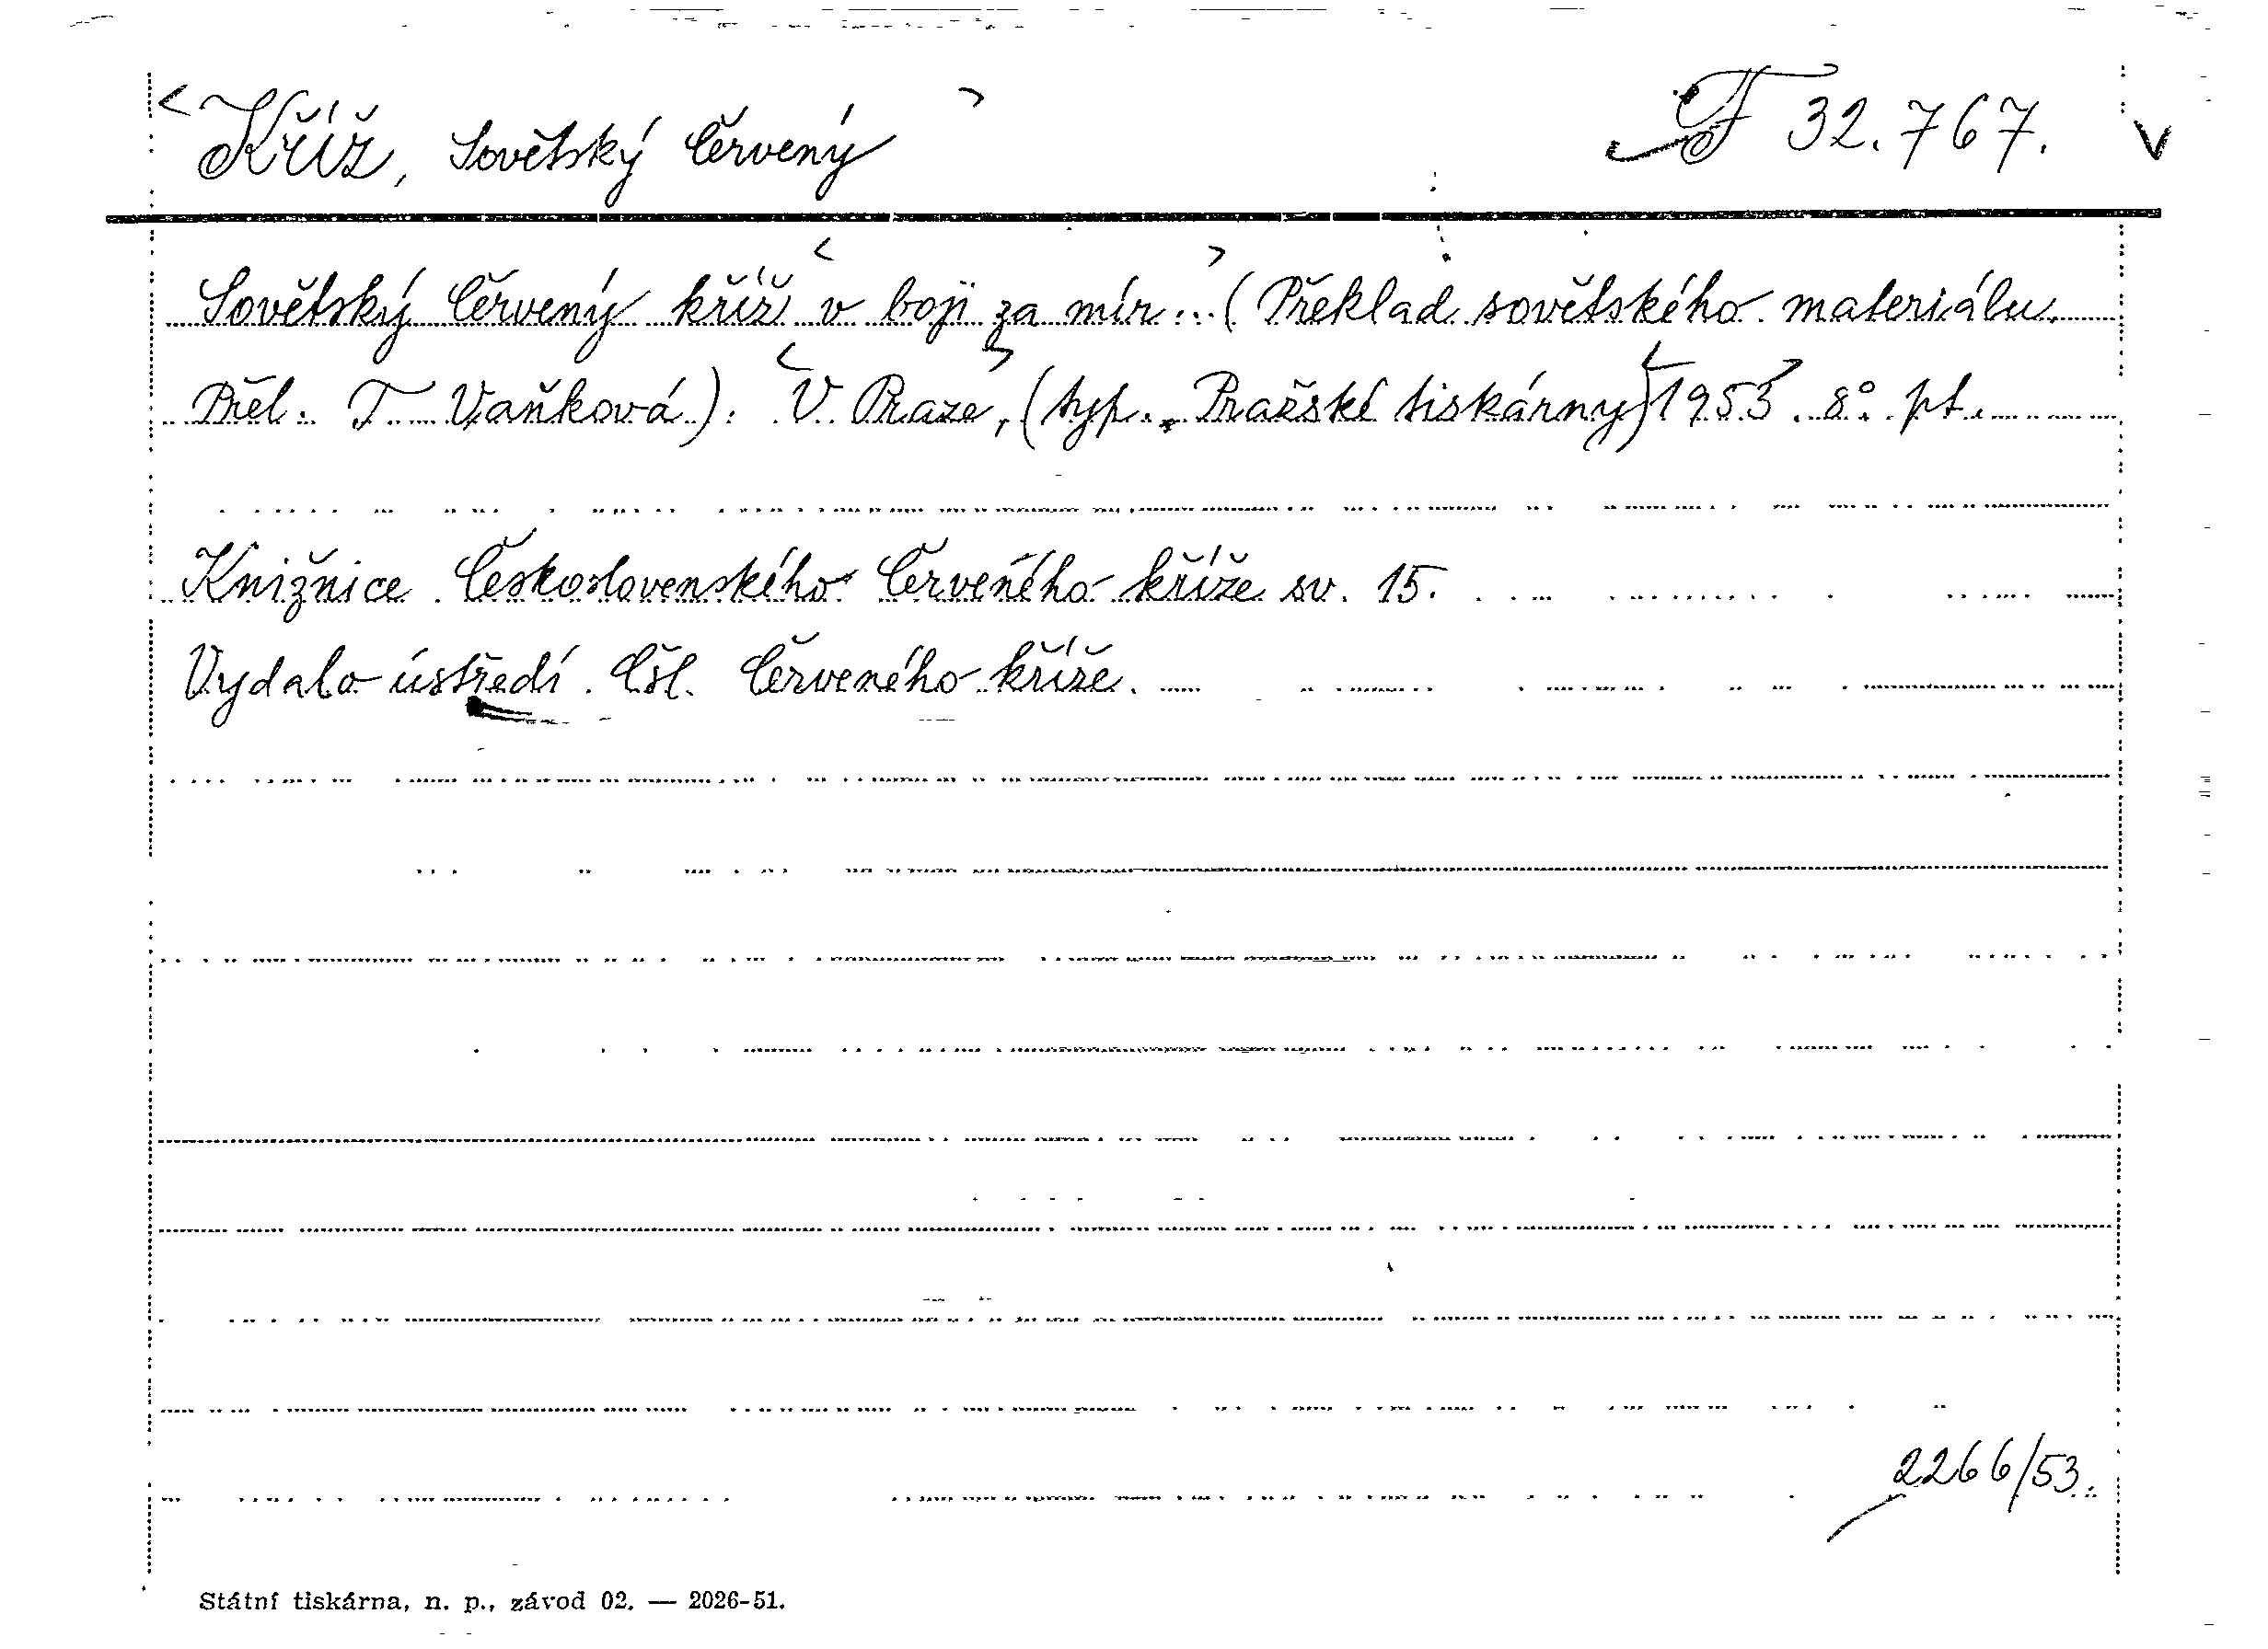 <Kříž, Sovětský Červený> F 32.767. V
Sovětský Červený kříž <v boji za mír...> (Překlad sovětského materiálu.
Přel. T. Vaňková). <V Praze>, (typ. Pražské tiskárny) <1953>. 8°. pt.
Knižnice Československého Červeného kříže sv. 15.
Vydalo ústředí Čsl. Červeného kříže.
2266/53.
Státní tiskárna, n. p., závod 02. — 2026-51.